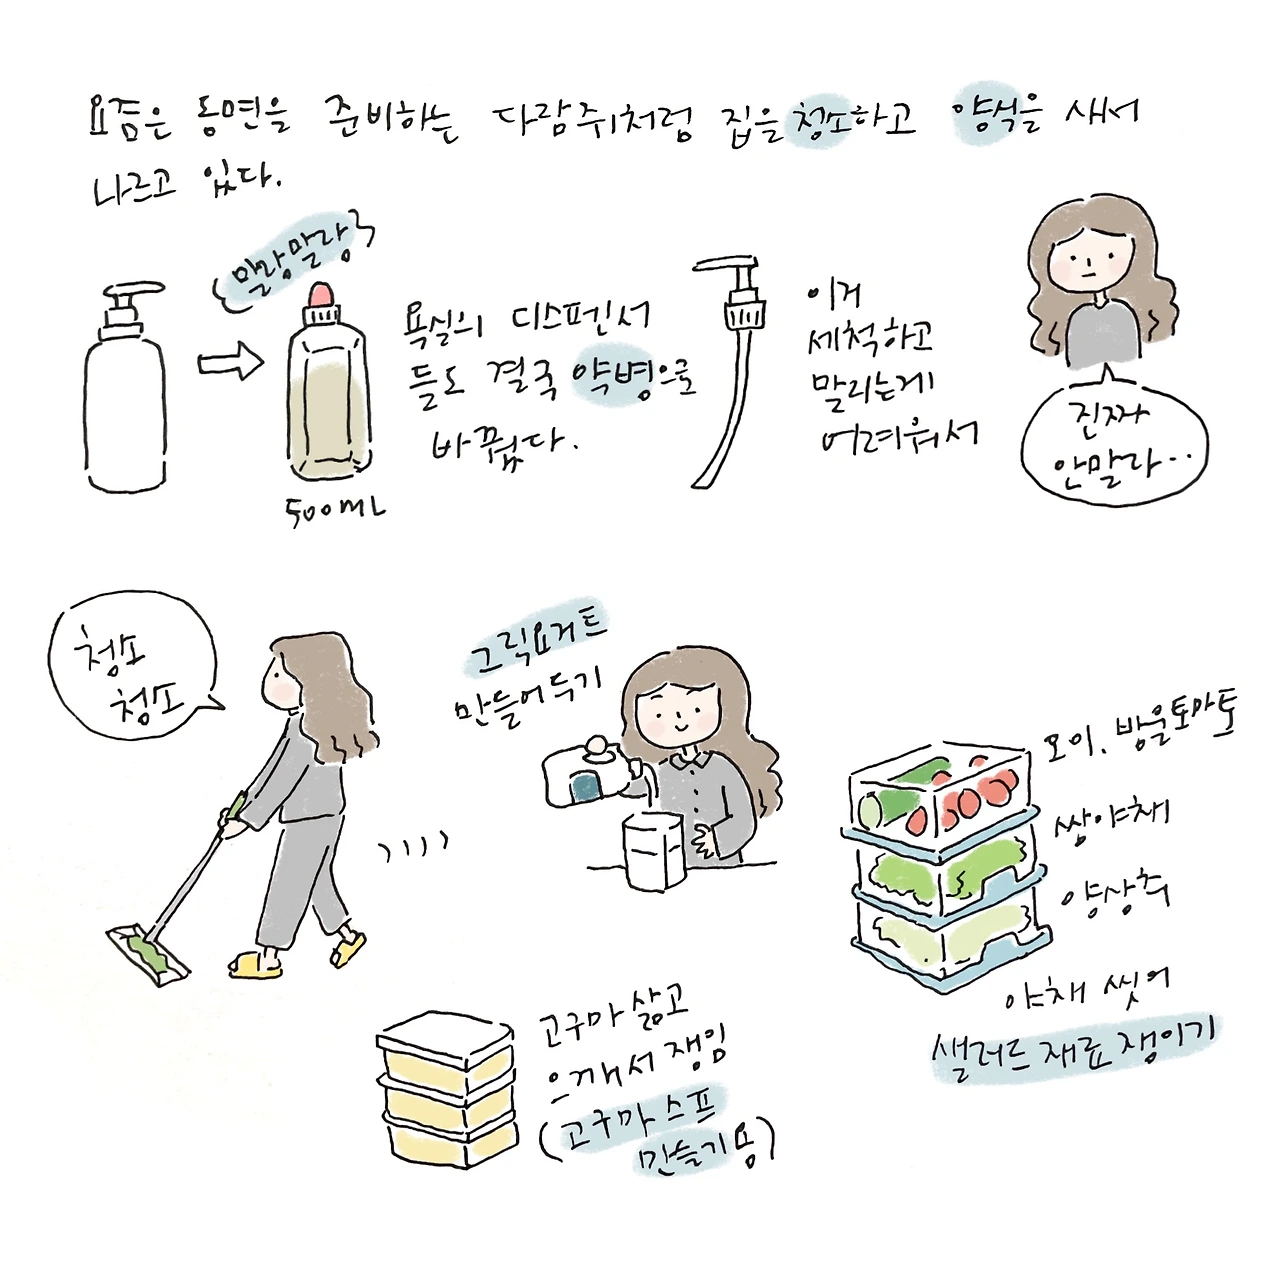 요즘은 동면을 준비하는 다람쥐처럼 집을 청소하고 양식을 새서
나르고 있다.
말랑말랑
500mL
욕실의 디스펜서
들도 결국 약병으로
바꿨다.
이거
세척하고
말리는게
어려워서
진짜
안말라..
청소
청소
그릭요거트
만들어두기
오이. 방울토마토
쌈야채
양상추
야채 씻어
샐러드 재료 쟁이기
고구마 삶고
으깨서 쟁임
(고구마 스프
만들기용)